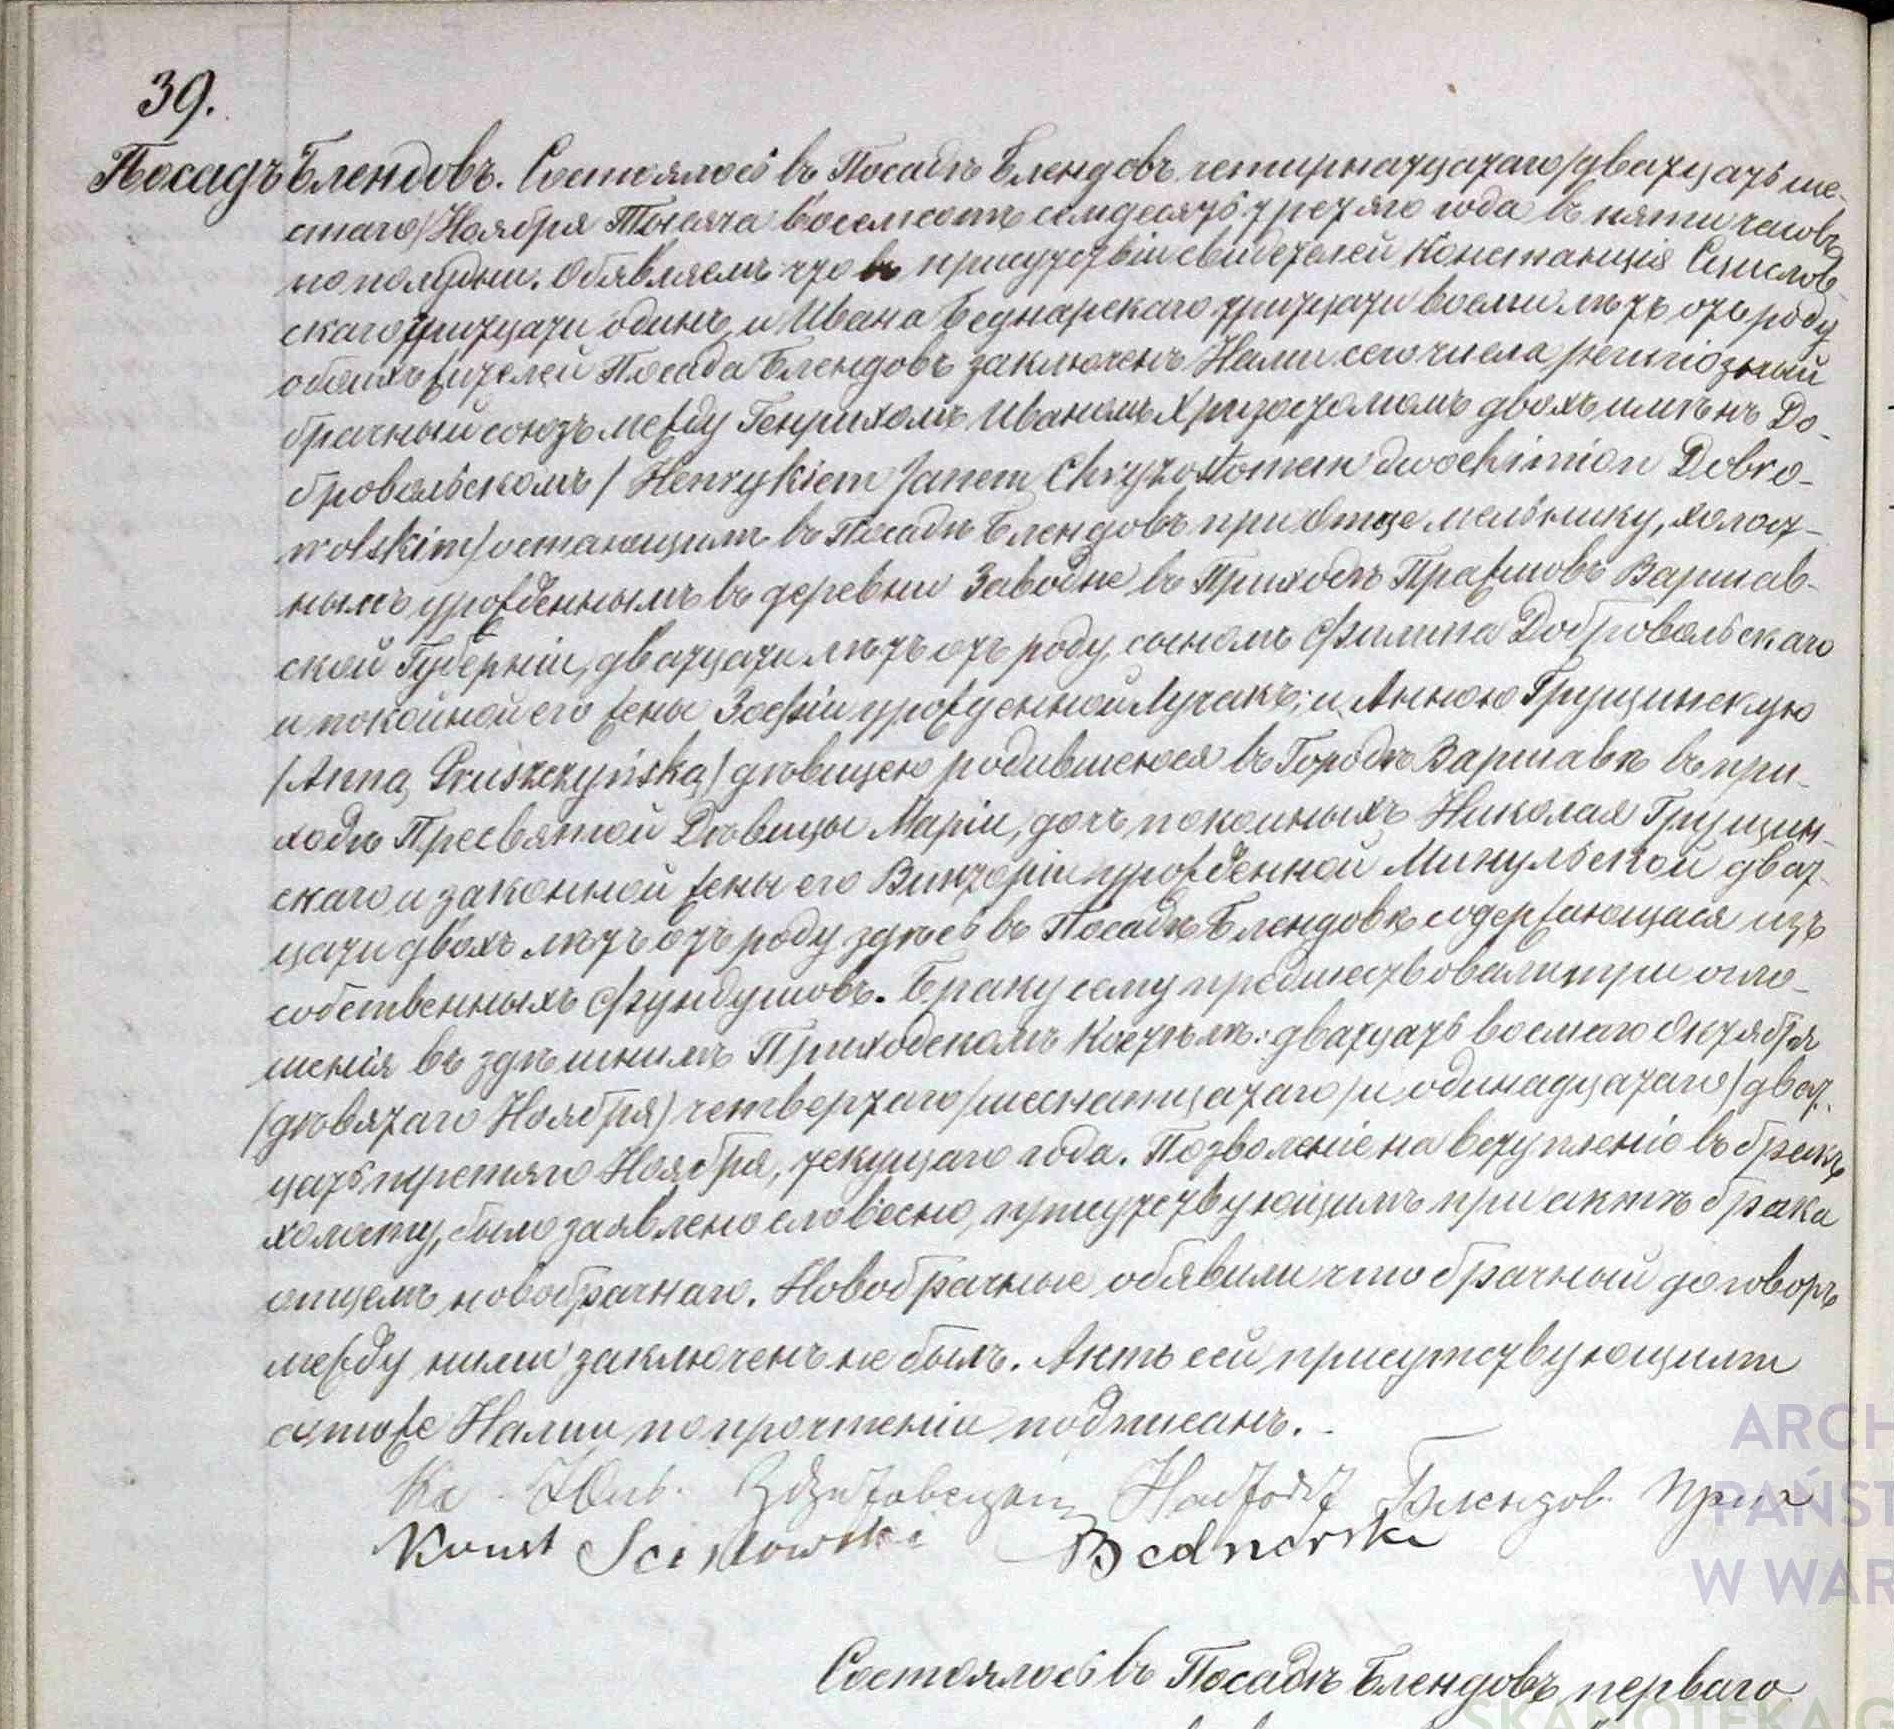 39.
Посадъ Блендовъ. Состоялось въ Посадѣ Блендовъ четирнатцатаго/дватцать ше-
стаго/Ноября Тысяча восемсотъ семдесятъ третяго года въ пяти часовъ
по полудни. Обявляемъ что въ присутствіи свидетелей Констанція Сцислов-
скаго тритцати одинъ, и Ивана Беднарскаго тритцати восми лѣтъ отъ роду
обоихъ жителей Посада Блендовъ заключенъ Нами сего числа религіозный
брачный союзъ между Генрихомъ Иваномъ Хризостомомъ двохъ именъ До-
бровольскомъ / Henrykiem Janem Chryzostomem dwochimion Dobro-
wolskim/ остающимъ въ Посадѣ Блендовъ при Отце мельнику, холост-
нымъ урожденнымъ въ деревни Заводне въ Приходѣ Пражмовъ Варшав-
ской Губерніи, дватцати лѣтъ отъ роду, сыномъ Филипа Добровольскаго
и покойной его жены Зофіи урожденной Лучакъ; и Анною Грущинскую
/Anną Gruszczyńską/ дѣвицею родившеюся въ Городѣ Варшавѣ въ при-
ходѣ Пресвятой Дѣвицы Маріи, дочъ покойныхъ Николая Грущин-
скаго и законной жены его Викторіи урожденной Микульской дват-
цати двохъ лѣтъ отъ роду здѣсь въ Посадѣ Блендовѣ содержающаяся изъ
собственныхъ фундушовъ. Браку сему предшествовали три огло-
шенія въ здѣшнимъ Приходскомъ Костѣлѣ: дватцать восмаго Октября
/дѣвятаго Ноября) четвертаго/шеснатцатаго/и одинадцатаго/дват-
цать третяго Ноября, текущаго года. Позволеніе на вступленіе въ бракъ
холосту, было заявлено словесно, присутствующимъ при актѣ брака
отцемъ новобрачнаго. Новобрачные обявили что брачный договоръ
между ними заключенъ не былъ. Актъ сей присутствующимъ
а тоже Нами по прочтеніи подписанъ.
Кс. Юль. Блендов. Прих
Konst Scisłowski Bednarski
Состоялось въ Посадѣ Блендовъ перваго
ARCH
PAŃST
W WAR
SKANOTEKA.G